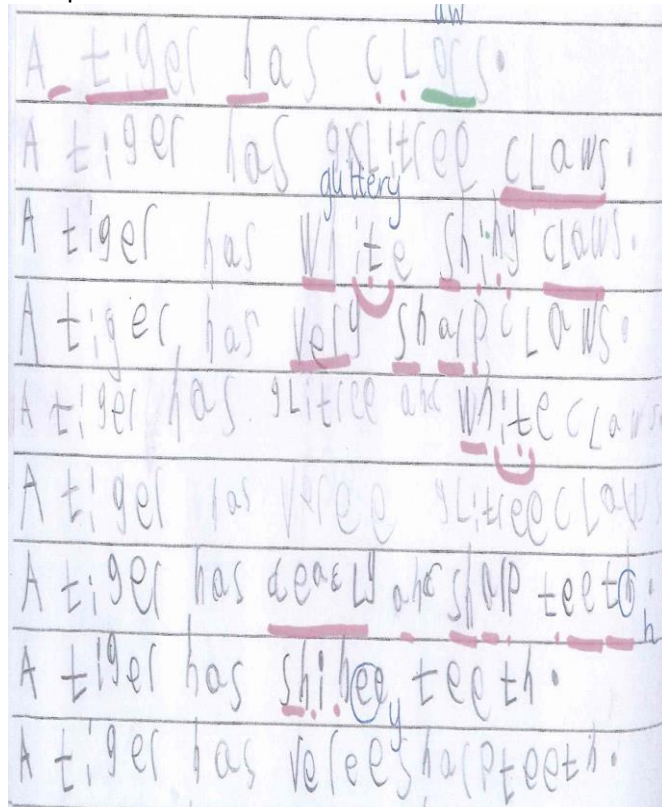 aw
A tiger has cLors.
A tiger has gxLitree cLaws.
guttery
A tiger has white shiny cLaws.
A tiger has very sharp cLaws.
A tiger has gLitree and white cLaws
A tiger has veree gLitree cLaws
A tiger has deadLy and sharp teeth.
h
A tiger has shinee teeth.
y
A tiger has veree sharp teeth.